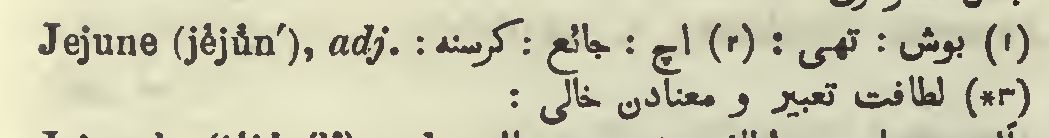 Jejune (jĕjūn′), adj. (۱) بوش : تهی : (۲) اچ : جائع : کرسنه :
(*۳) لطافت تعبیر و معنادن خالی :